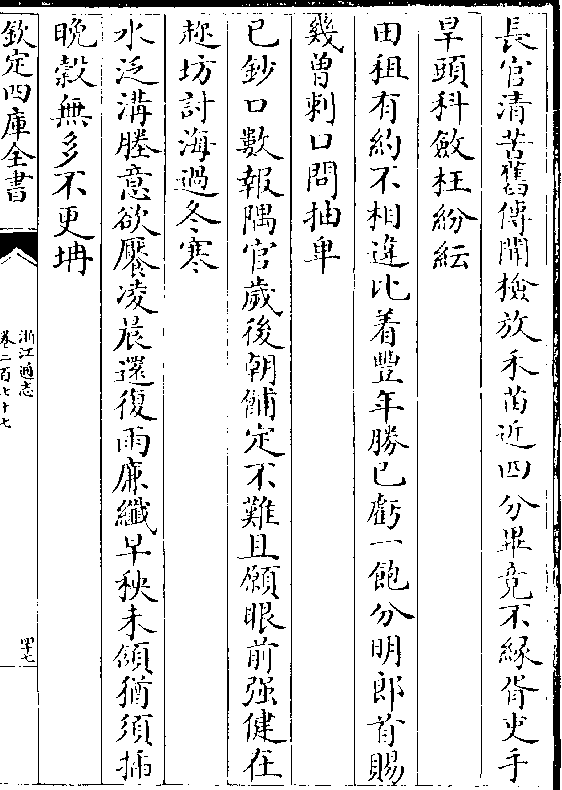 長官清苦舊傳聞檢放禾苗近四分畢竟不緣胥吏手
旱頭科斂枉紛紜
田租有約不相違比着豐年勝已虧一飽分明郎首賜
幾曽剌口問抽卑
已鈔口數報隅官歲後朝餔定不難且願眼前强健在
趂坊討海過冬寒
水泛溝塍意欲饜凌晨還復雨亷纖早秧未傾猶須插
晚糓無多不更坍
欽定四庫全書
浙江通志
卷二百七十七
四十七